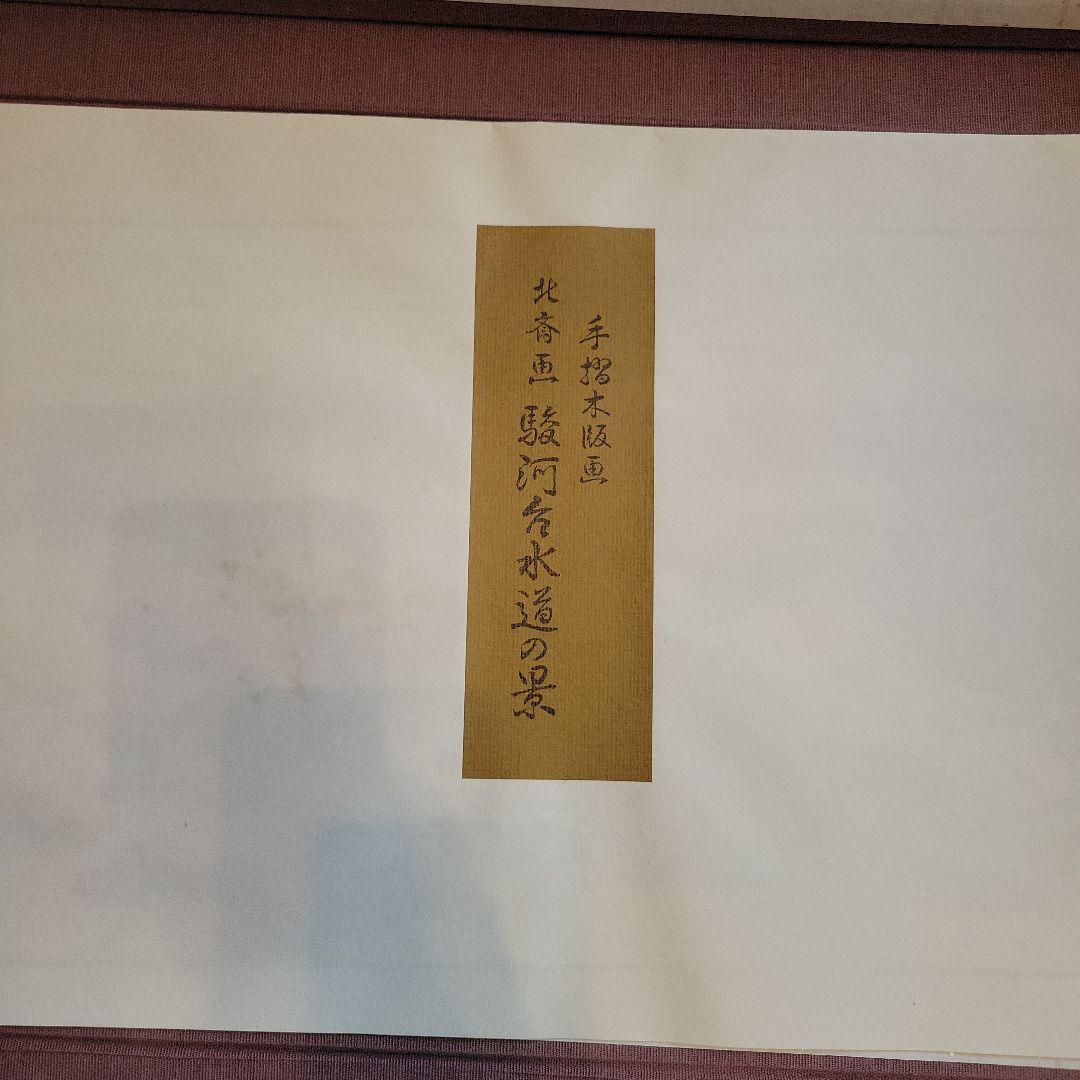 手摺木版画
北斎画 駿河台水道の景